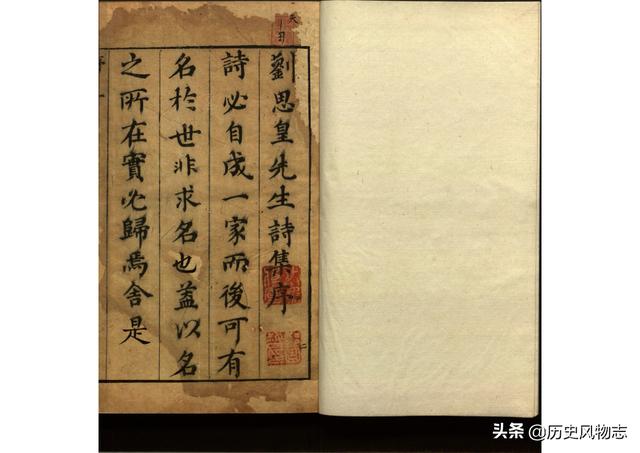 劉思皇先生詩集序
詩必自成一家而後可有
名於世非求名也葢以名
之所在實必歸焉舍是
头条 @历史风物志